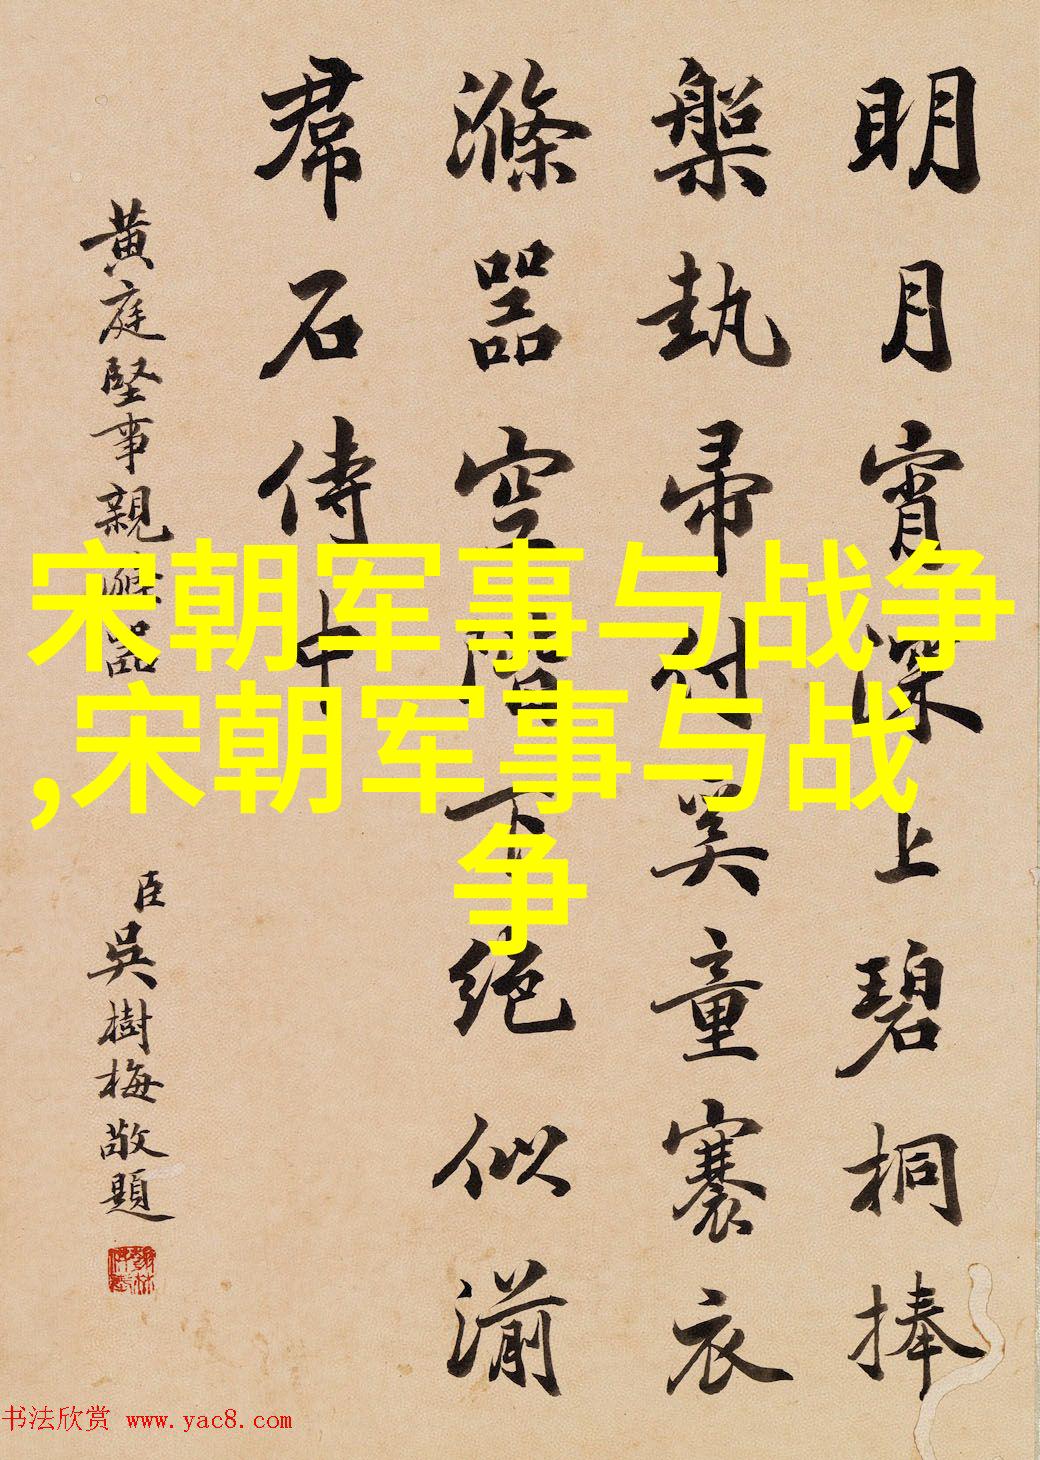 明月宵深上碧桐捧
槃執帚付奚童褰衣
滌器空階下絕似湔
帬石傍中
黃庭堅事親滌器
臣吳樹梅敬題
宋朝军事与战争
,宋朝军事与战
争
书法欣赏 www.yac8.com